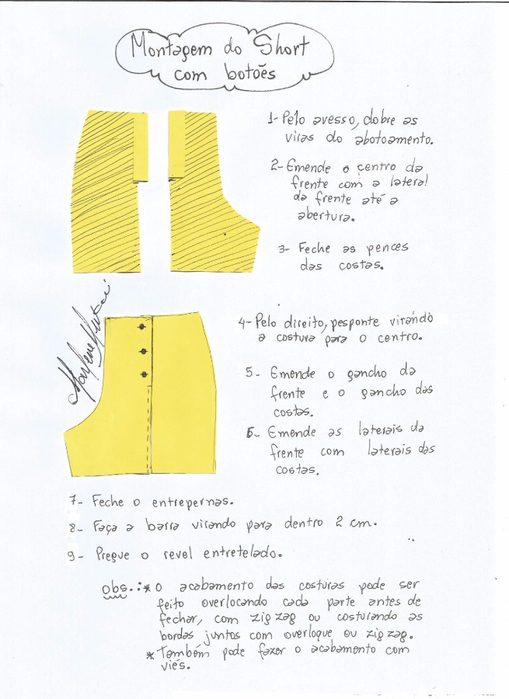 Montagem do Short
com botões
1- Pelo avesso, dobre as
viras do abotoamento.
2- Emende o centro da
frente com a lateral
da frente até a
abertura.
3- Feche as pences
das costas.
4- Pelo direito, pesponte virando
a costura para o centro.
5- Emende o gancho da
frente e o gancho das
costas.
6- Emende as laterais da
frente com laterais das
costas.
7- Feche o entrepernas.
8- Faça a barra virando para dentro 2 cm.
9- Pregue o revel entretelado.
obs.:* O acabamento das costuras pode ser
feito overlocando cada parte antes de
fechar, com zig zag ou costurando as
bordas juntos com overloque ou zig zag.
* Também pode fazer o acabamento com
viés.